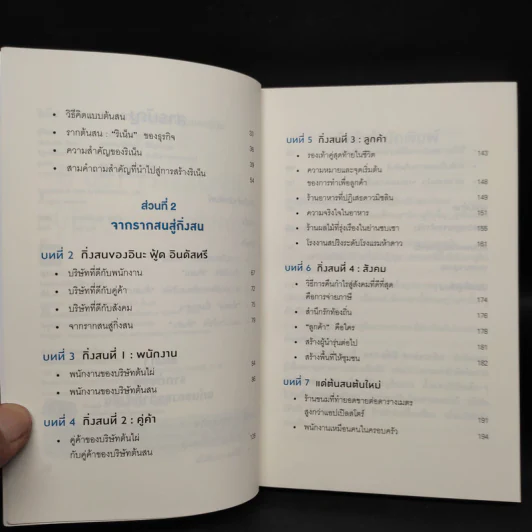 • วิธีคิดแบบต้นสน
• รากต้นสน : "ริเน็น" ของธุรกิจ
• ความสำคัญของริเน็น
• สามคำถามสำคัญที่นำไปสู่การสร้างริเน็น
ส่วนที่ 2
จากรากสนสู่กิ่งสน
บทที่ 2 กิ่งสนของอินะ ฟู้ด อินดัสทรี
• บริษัทที่ดีกับพนักงาน
• บริษัทที่ดีกับคู่ค้า
• บริษัทที่ดีกับสังคม
• จากรากสนสู่กิ่งสน
บทที่ 3 กิ่งสนที่ 1 : พนักงาน
• พนักงานของบริษัทต้นไผ่
• พนักงานของบริษัทต้นสน
บทที่ 4 กิ่งสนที่ 2 : คู่ค้า
• คู่ค้าของบริษัทต้นไผ่
กับคู่ค้าของบริษัทต้นสน
บทที่ 5 กิ่งสนที่ 3 : ลูกค้า
• รองเท้าคู่สุดท้ายในชีวิต 143
• ความหมายและจุดเริ่มต้น
ของการทำเพื่อลูกค้า 146
• ร้านอาหารที่ปฏิเสธดาวมิชลิน 149
• ความจริงใจในอาหาร 151
• ร้านผลไม้ที่รุ่งเรืองในย่านซบเซา 156
• โรงงานสปริงระดับโรงแรมห้าดาว 161
บทที่ 6 กิ่งสนที่ 4 : สังคม
• วิธีการคืนกำไรสู่สังคมที่ดีที่สุด
คือการจ่ายภาษี 174
• สำนึกรักท้องถิ่น 176
• "ลูกค้า" คือใคร 178
• สร้างผู้นำรุ่นต่อไป 181
• สร้างพื้นที่ให้ชุมชน 182
บทที่ 7 แด่ต้นสนต้นใหม่
• ร้านขนมที่ทำยอดขายต่อตารางเมตร
สูงกว่าแอปเปิลสโตร์ 191
• พนักงานเหมือนคนในครอบครัว 194